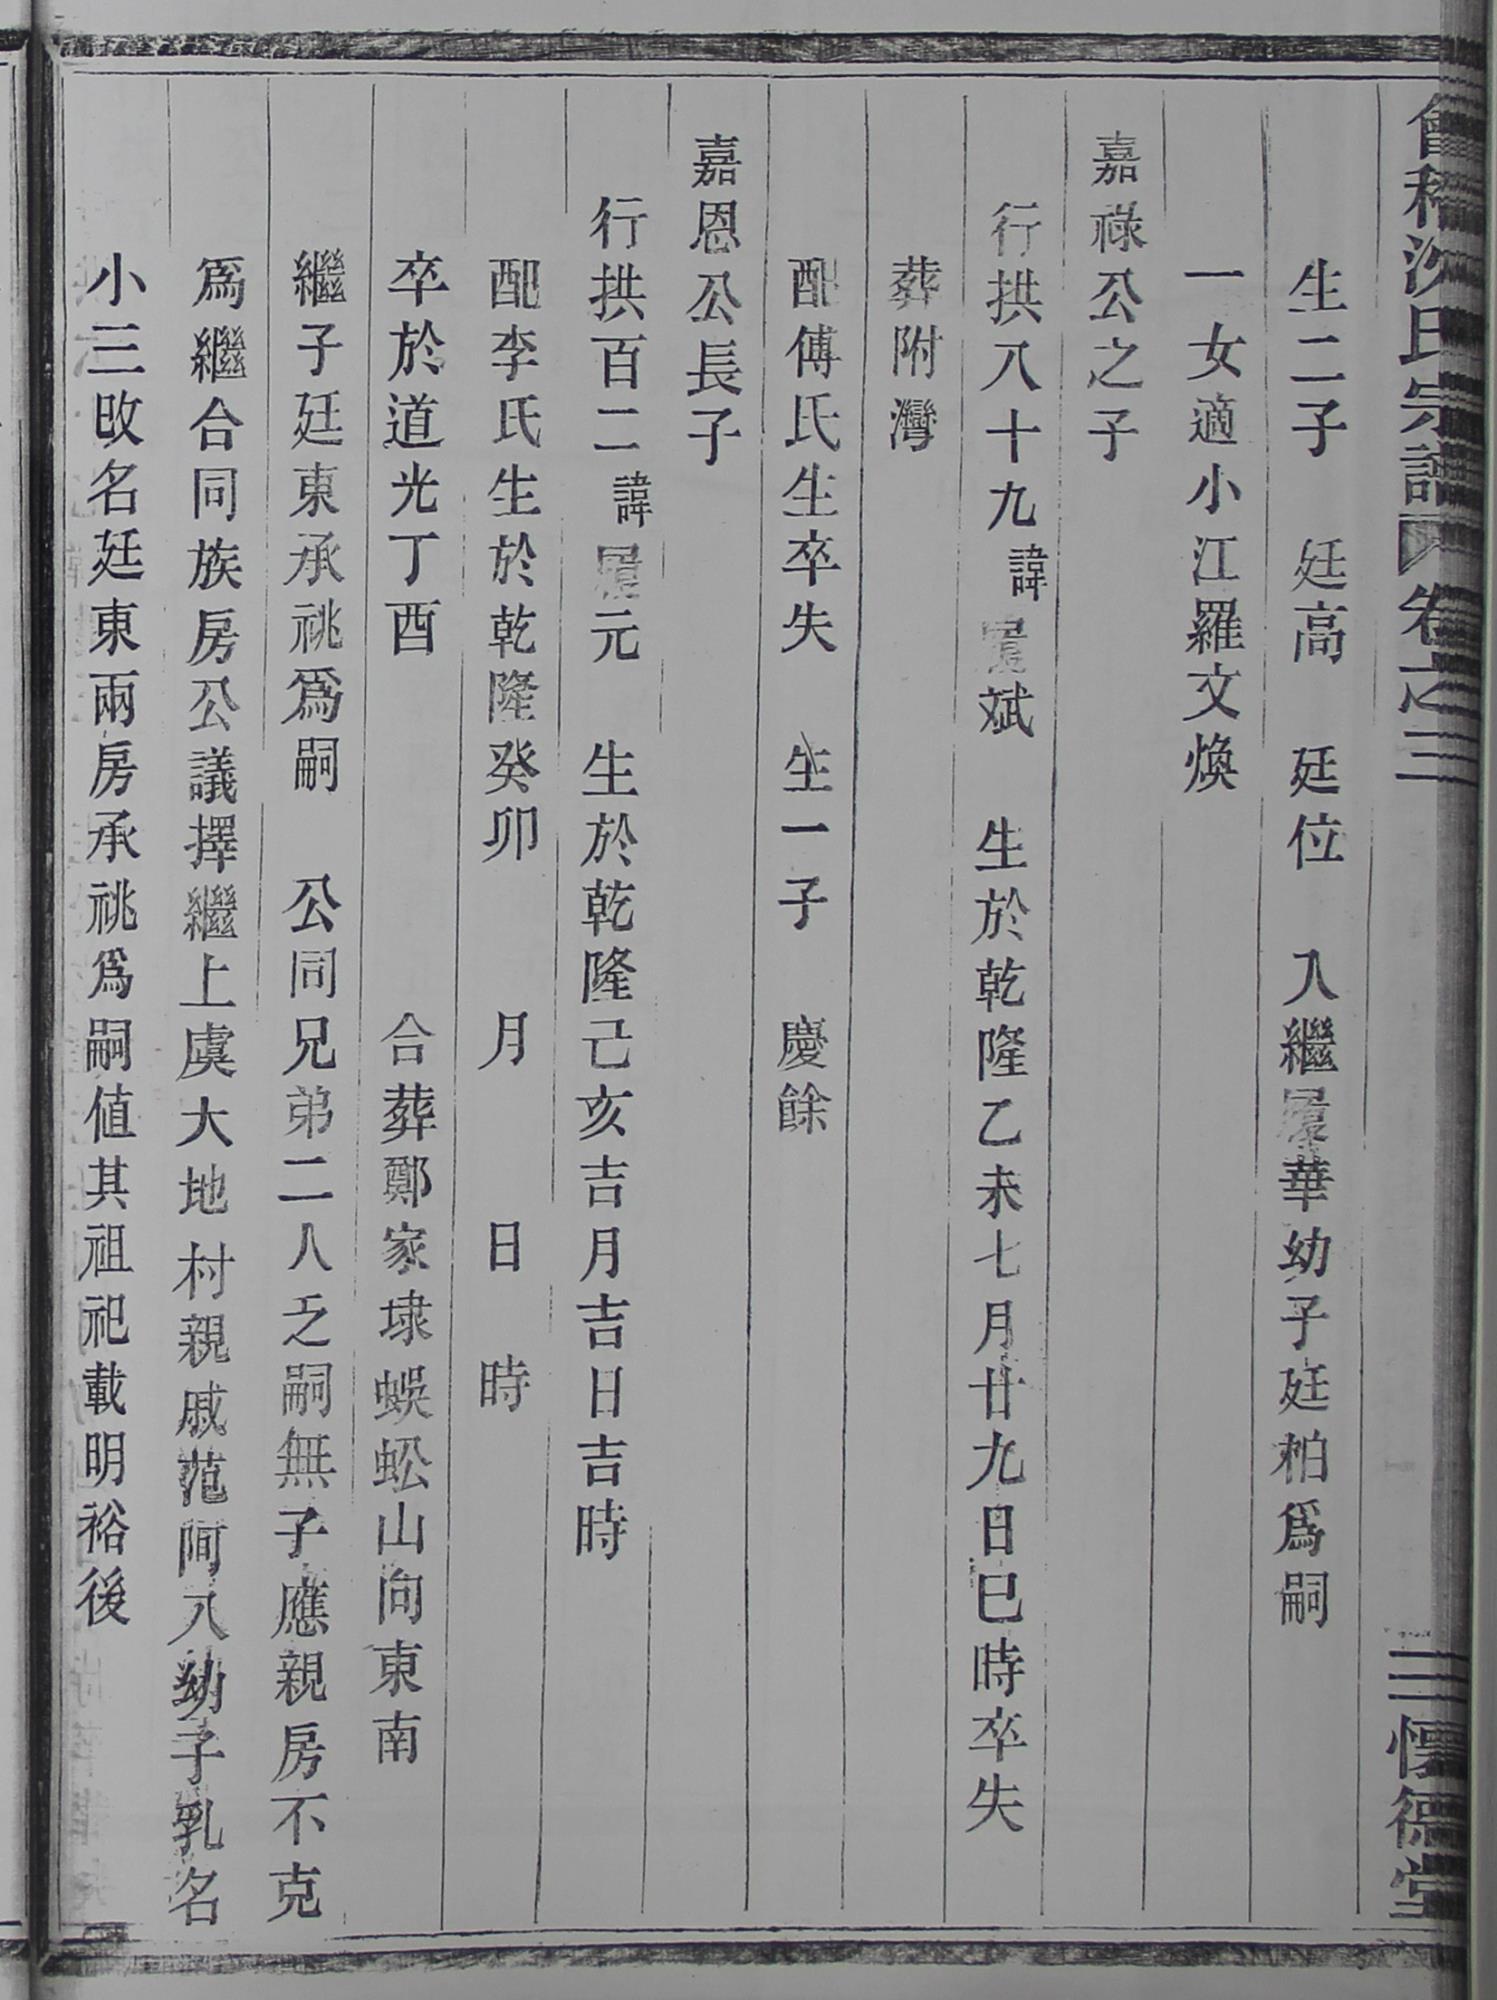 會稽沈氏宗譜 卷之三 三 懷德堂
生二子 廷高 廷位 入繼履華幼子廷柏爲嗣
一女適小江羅文煥
嘉祿公之子
行拱八十九諱履斌 生於乾隆乙未七月廿九日巳時卒失
葬附灣
配傅氏生卒失 生一子 慶餘
嘉恩公長子
行拱百二諱履元 生於乾隆己亥吉月吉日吉時
配李氏生於乾隆癸卯 月 日 時
卒於道光丁酉 合葬鄭家埭蜈蚣山向東南
繼子廷東承祧爲嗣 公同兄弟二人乏嗣無子應親房不克
爲繼合同族房公議擇繼上虞大地村親戚范阿八幼子乳名
小三改名廷東兩房承祧爲嗣值其祖祀載明裕後